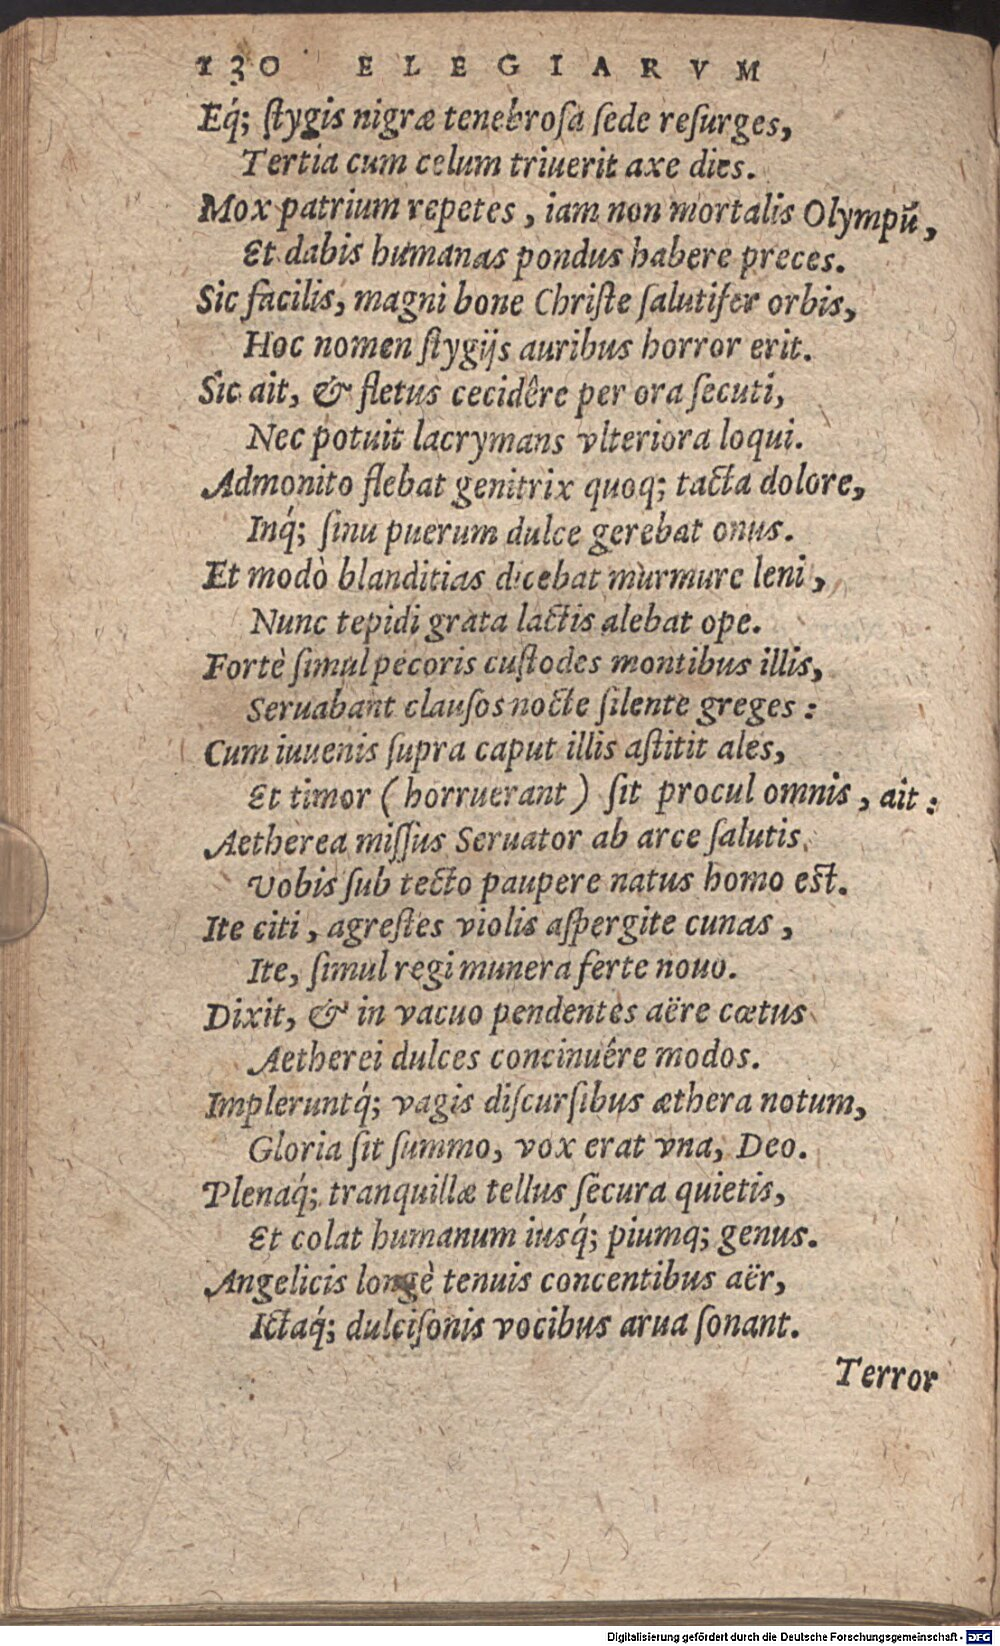 130 ELEGIARVM
Eq́; ſtygis nigræ tenebroſa ſede reſurges,
Tertia cum celum triuerit axe dies.
Mox patrium repetes, iam non mortalis Olympũ,
Et dabis humanas pondus habere preces.
Sic facilis, magni bone Chriſte ſalutifer orbis,
Hoc nomen ſtygijs auribus horror erit.
Sic ait, & fletus cecidêre per ora ſecuti,
Nec potuit lacrymans vlteriora loqui.
Admonito flebat genitrix quoq; tacta dolore,
Inq́; ſinu puerum dulce gerebat onus.
Et modò blanditias dicebat murmure leni,
Nunc tepidi grata lactis alebat ope.
Fortè ſimul pecoris cuſtodes montibus illis,
Seruabant clauſos nocte ſilente greges:
Cum iuuenis ſupra caput illis aſtitit ales,
Et timor (horruerant) ſit procul omnis, ait:
Aetherea miſſus Seruator ab arce ſalutis
Vobis ſub tecto paupere natus homo est.
Ite citi, agreſtes violis aſpergite cunas,
Ite, ſimul regi munera ferte nouo.
Dixit, & in vacuo pendentes aëre cœtus
Aetherei dulces concinuére modos.
Impleruntq́; vagis diſcurſibus æthera notum,
Gloria ſit ſummo, vox erat vna, Deo.
Plenaq́; tranquillæ tellus ſecura quietis,
Et colat humanum iusq́; piumq; genus.
Angelicis longè tenuis concentibus aër,
Ictaq́; dulciſonis vocibus arua ſonant.
Terror
Digitalisierung gefördert durch die Deutsche Forschungsgemeinschaft - DFG